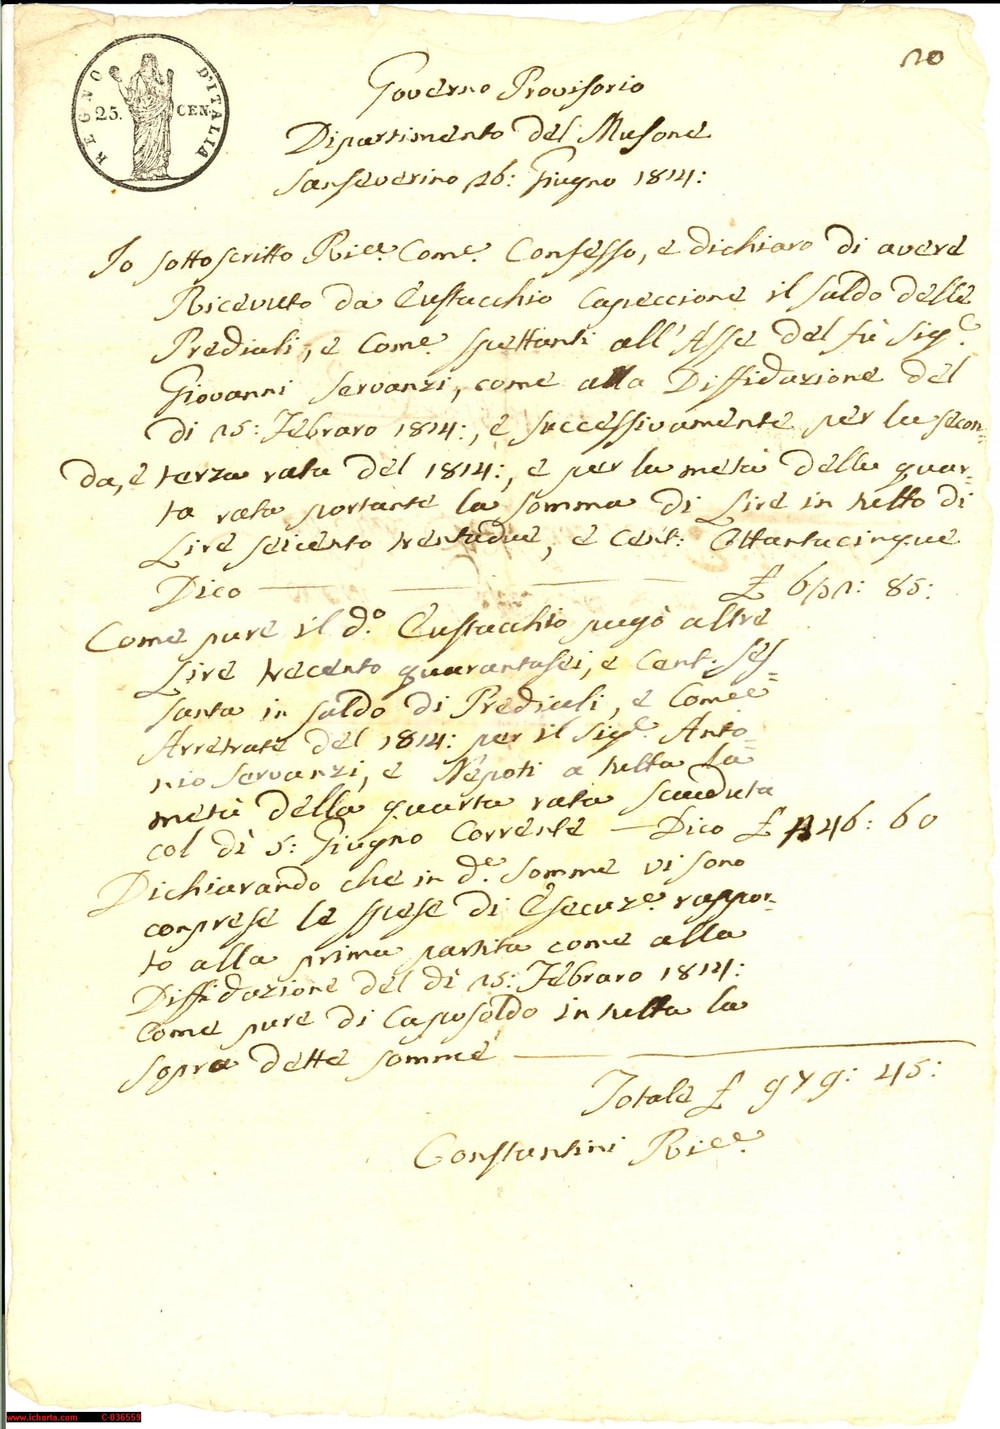 REGNO D'ITALIA
25. CEN.
20
Governo Provisorio
Dipartimento del Musone
Sanseverino 26: Giugno 1814:
Io sottoscritto Ric.e Com.e Confesso, e dichiaro di avere
Ricevuto da Eustacchio Capeccione il saldo delle
Prediali, e Com.e spettanti all'Asse del fù Sig.e
Giovanni Servanzi, come alla Diffidazione del
di 25: Febraro 1814:, e successivamente per la secon=
da, e terza rata del 1814:, e per la metà della quar=
ta rata portante la somma di Lire in tutto di
Lire seicento trentadue, e Cent: Ottantacinque
Dico £ 632: 85:
Come pure il d.o Eustacchio pagò altre
Lire trecento quarantasei, e Cent: ses=
santa in saldo di Prediali, e Com.e
Arretrate del 1814: per il Sig.e Anto=
nio Servanzi, e Nepoti a tutta la
metà della quarta rata scaduta
col dì 5: Giugno Corrente — Dico £ 346: 60
Dichiarando che in d.e somme vi sono
comprese le spese di Esecuz.e rappor=
to alla prima partita come alla
Diffidazione del dì 25: Febraro 1814:
Come pure di Caposoldo in tutta la
sopra dette somme
Totale £ 979: 45:
Constantini Ric.e
www.icharta.com C-036559